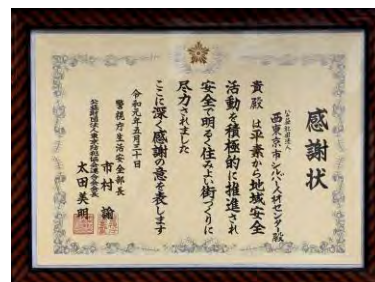 感謝状
公益社団法人
西東京市シルバー人材センター殿
貴殿は平素から地域安全
活動を積極的に推進され
安全で明るく住みよい街づくりに
尽力されました
ここに深く感謝の意を表します
令和元年五月三十日
警視庁生活安全部長
市村諭
公益財団法人東京防犯協会連合会会長
太田美明